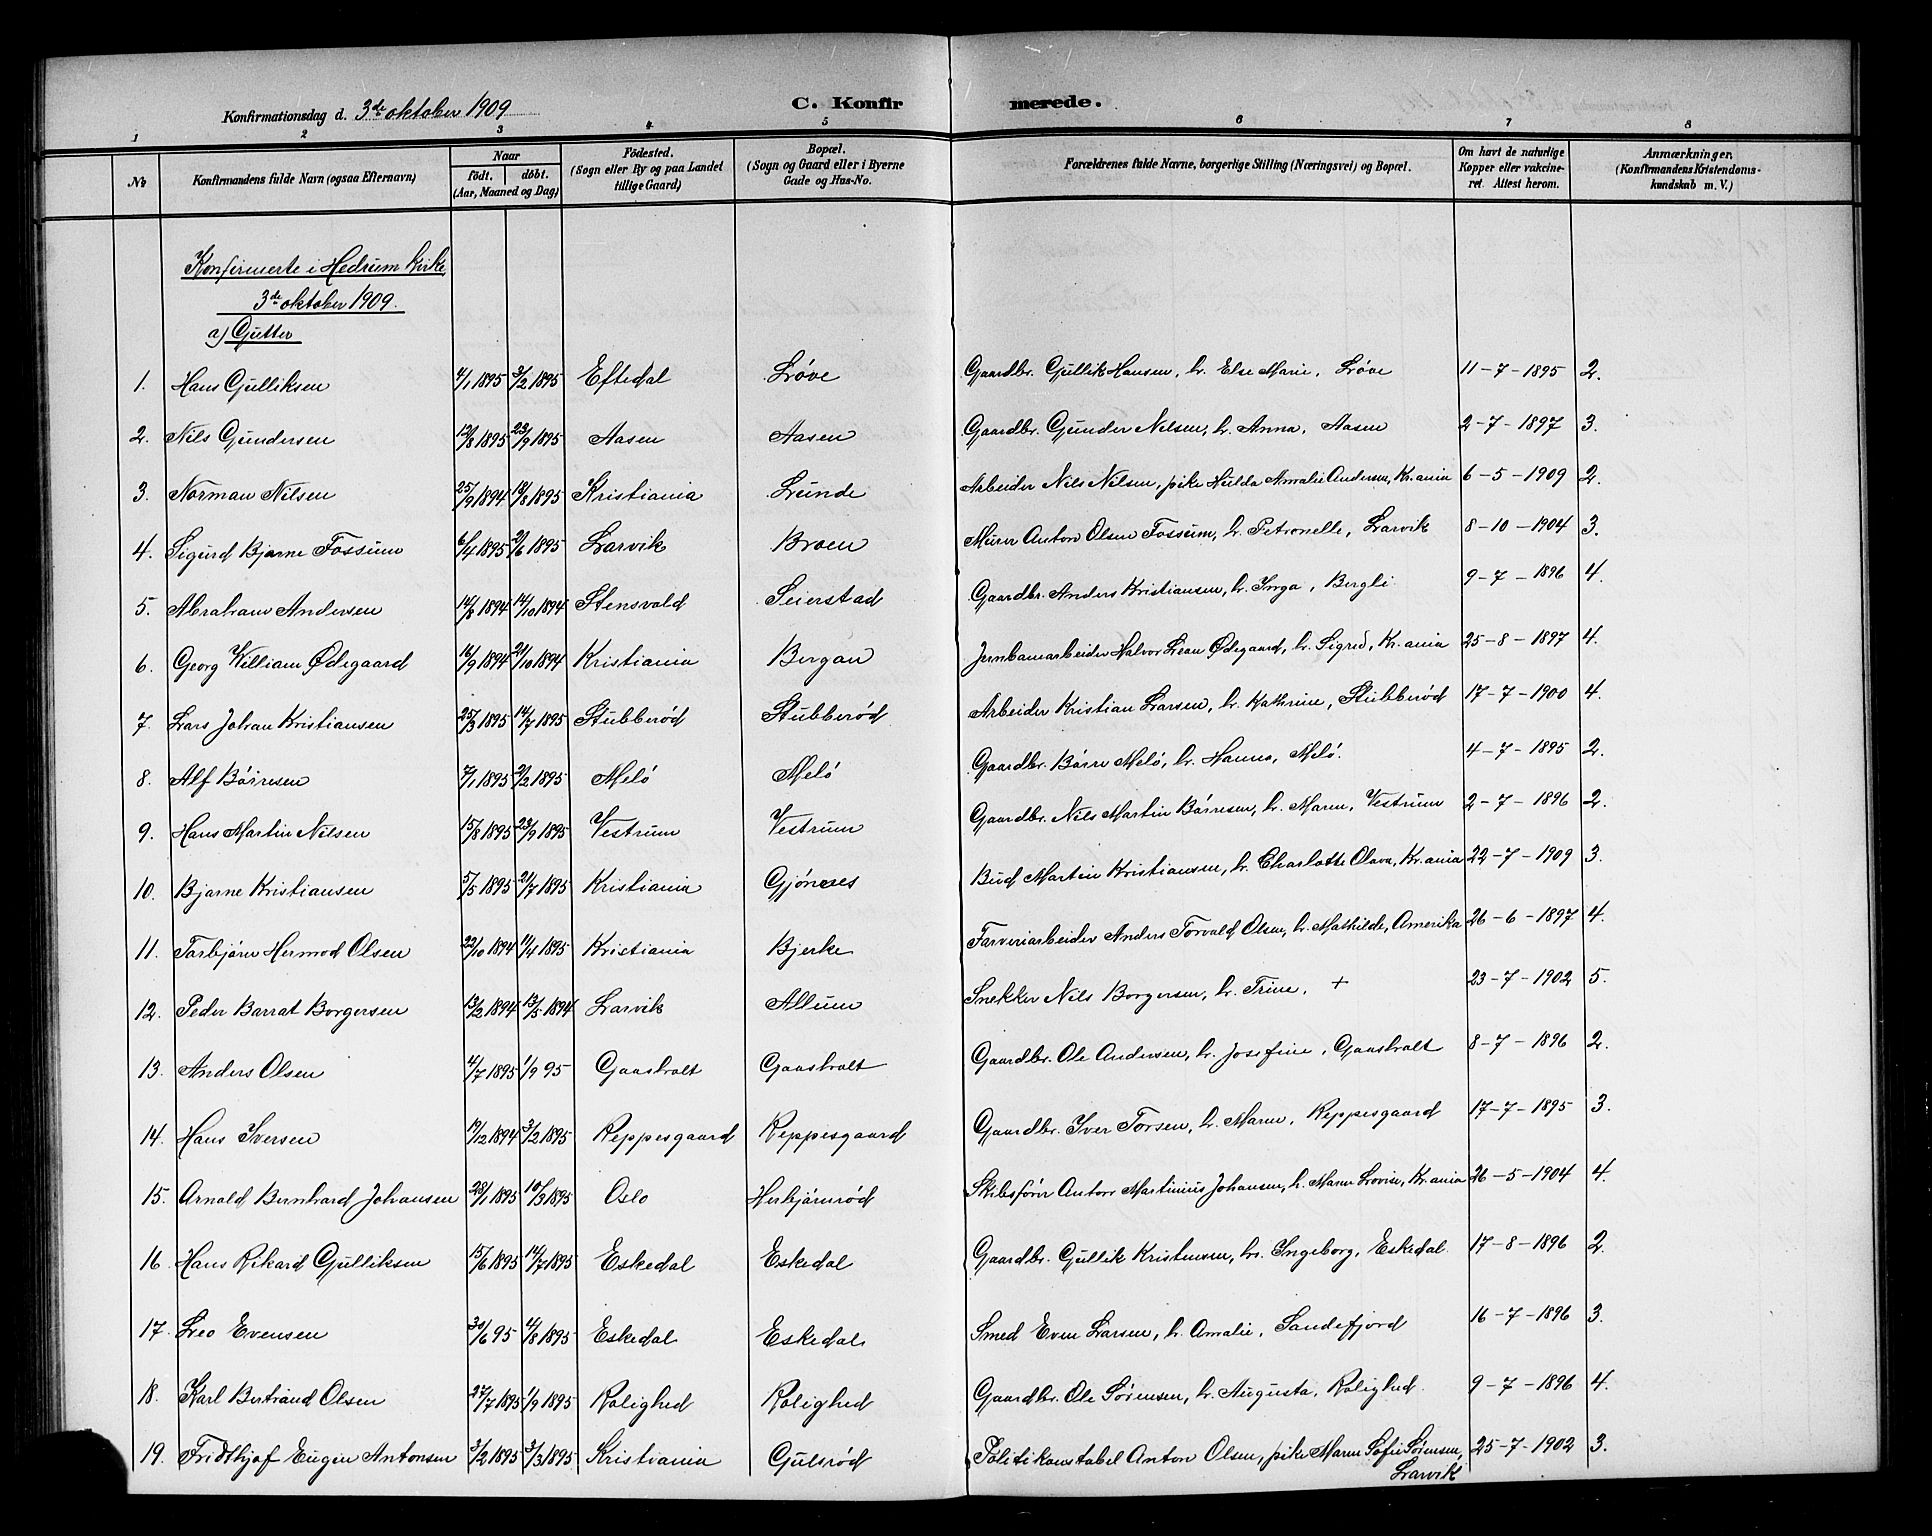 Konfirmationsdag d. 3de oktober 1909
C. Konfirmerede.
1 2 3 4 5 6 7 8
No
Konfirmandens fulde Navn (ogsaa Efternavn)
Naar
födt. döbt.
(Aar, Maaned og Dag)
Födested.
(Sogn eller By og paa Landet
tillige Gaard)
Bopæl.
(Sogn og Gaard eller i Byerne
Gade og Hus-No.
Forældrenes fulde Navne, borgerlige Stilling (Næringsvei) og Bopæl.
Om havt de naturlige
Kopper eller vakcine-
ret. Attest herom.
Anmærkninger.
(Konfirmandens Kristendoms-
kundskab m. V.)
Konfirmerte i Hedrum kirke
3de oktober 1909.
a) Gutter
1. Hans Gulliksen 4/1 1895 3/2 1895 Eftedal Løve Gaardbr. Gullik Hansen, h. Else Marie, Løve 11-7-1895 2.
2. Nils Gundersen 12/8 1895 22/9 1895 Aasen Aasen Gaardbr. Gunder Nilsen, h. Anna, Aasen 2-7-1897 3.
3. Norman Nilsen 25/9 1894 18/8 1895 Kristiania Lunde Arbeider Nils Nilsen, pike Hulda Amalie Andersen, Kr.ania 6-5-1909 2.
4. Sigurd Bjarne Fossum 6/4 1895 2/6 1895 Larvik Broen Murer Anton Olsen Fossum, h. Petronelle, Larvik 8-10-1904 3.
5. Abraham Andersen 14/8 1894 14/10 1894 Stensvald Seierstad Gaardbr. Anders Kristiansen, h. Inga, Bergli 9-7-1896 4.
6. Georg William Ødegaard 16/9 1894 21/10 1894 Kristiania Bergan Jernbanearbeider Halvor Lean Ødegaard, h. Sigrid, Kr.ania 25-8-1897 4.
7. Lars Johan Kristiansen 25/3 1895 14/7 1895 Stubberød Stubberød Arbeider Kristian Larsen, h. Kathrine, Stubberød 17-7-1900 4.
8. Alf Börresen 7/1 1895 2/2 1895 Melö Melö Gaardbr. Börre Melö, h. Hanna, Melö. 4-7-1895 2.
9. Hans Martin Nilsen 15/8 1895 22/9 1895 Vestrum Vestrum Gaardbr. Nils Martin Börresen, h. Maren, Vestrum 2-7-1896 2.
10. Bjarne Kristiansen 5/5 1895 21/7 1895 Kristiania Gjönnes Bud Martin Kristiansen, h. Charlotte Olava, Kr.ania 22-7-1909 3.
11. Torbjörn Hermod Olsen 22/10 1894 11/4 1895 Kristiania Bjerke Farveriarbeider Anders Torvald Olsen, h. Mathilde, Amerika 26-6-1897 4.
12. Peder Barrat Borgersen 13/2 1894 13/5 1894 Larvik Allum Snekker Nils Borgersen, h. Trine, + 23-7-1902 5.
13. Anders Olsen 4/7 1895 1/9 95 Gaasholt Gaasholt Gaardbr. Ole Andersen, h. Josefine, Gaasholt 8-7-1896 2.
14. Hans Iversen 17/12 1894 3/2 1895 Reppesgaard Reppesgaard Gaardbr. Iver Torsen, h. Maren, Reppesgaard 17-7-1895 3.
15. Arnold Bernhard Johansen 28/1 1895 10/3 1895 Oslo Herbjörnröd Skibsförer Anton Martinius Johansen, h. Maren Lovise, Kr.ania 26-5-1904 4.
16. Hans Rikard Gulliksen 15/6 1895 14/7 1895 Eskedal Eskedal Gaardbr. Gullik Kristensen, h. Ingeborg, Eskedal 17-8-1896 2.
17. Leo Evensen 30/6 95 4/8 1895 Eskedal Eskedal Smed Even Larsen, h. Amalie, Sandefjord 16-7-1896 3.
18. Karl Bertrand Olsen 27/7 1895 1/9 1895 Rolighed Rolighed Gaardbr. Ole Sörensen, h. Augusta, Rolighed. 9-7-1896 4.
19. Fridthjof Eugen Antonsen 3/2 1895 3/3 1895 Kristiania Gulsröd Politikonstabel Anton Olsen, pike Maren Sofie Sörensen, 25-7-1902 3.
Larvik